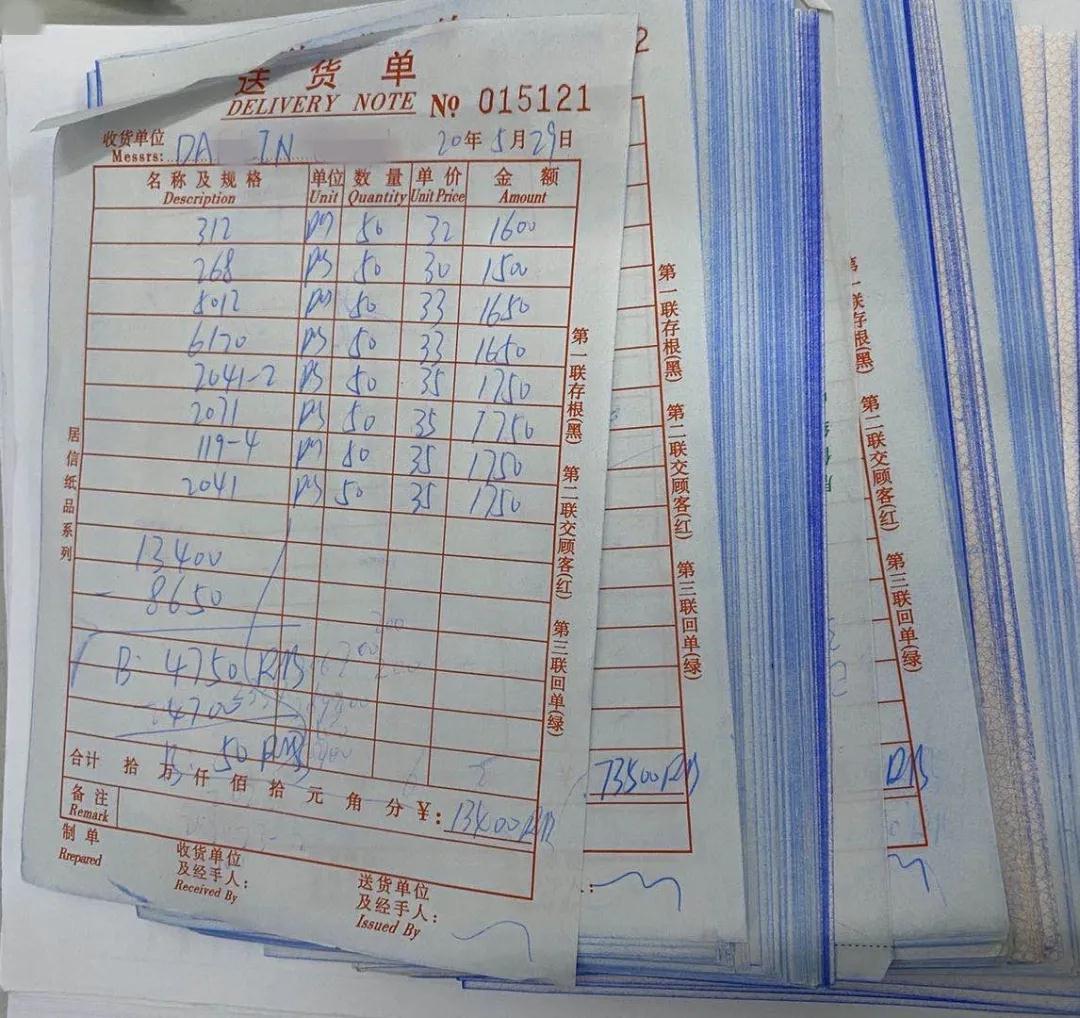 送货单
DELIVERY NOTE № 015121
收货单位
Messrs: DA IN 20年5月29日
名称及规格 单位 数量 单价 金额
Description Unit Quantity Unit Price Amount
312 50 32 1600
268 50 30 1500
8012 50 33 1650
6170 50 33 1650
2041-2 50 35 1750
2071 50 35 1750
119-4 50 35 1750
2041 50 35 1750
13400
- 8650
B: 4750 RMB
4700
B: 50 RMB
合计 拾 万 仟 佰 拾 元 角 分 ¥: 13400RMB
备注
Remark
制单
Rrepared
收货单位
及经手人:
Received By
送货单位
及经手人:
Issued By
居信纸品系列
第一联存根(黑) 第二联交顾客(红) 第三联回单(绿)
2
第一联存根(黑) 第二联交顾客(红) 第三联回单(绿)
73500RMB
第一联存根(黑) 第二联交顾客(红) 第三联回单(绿)